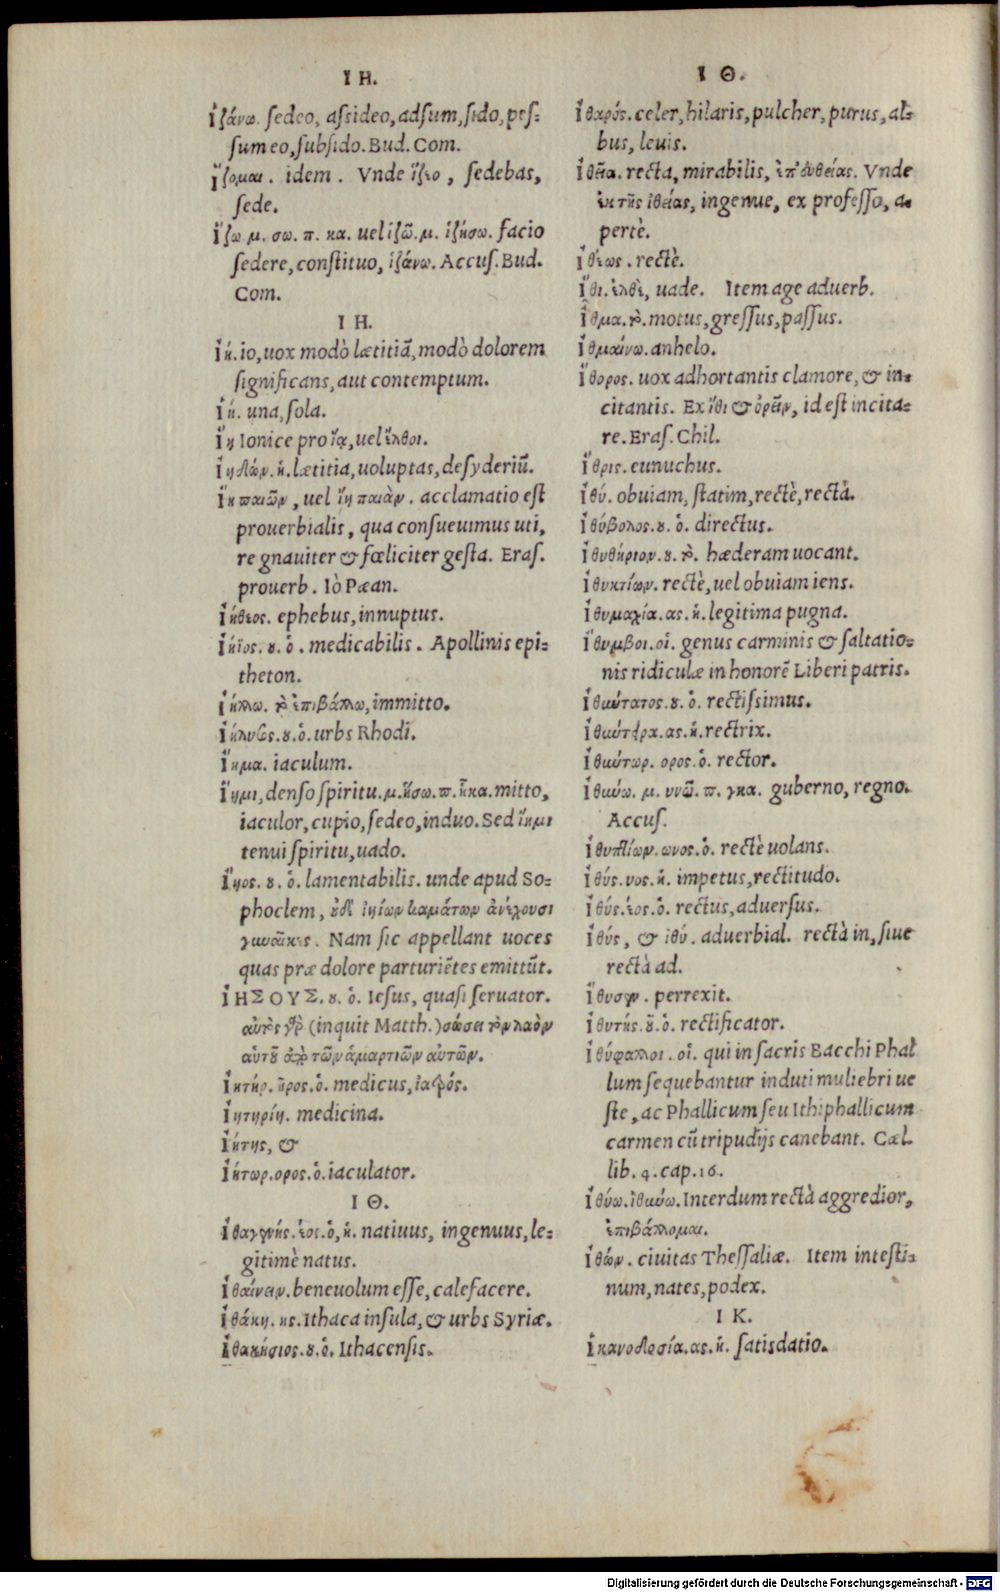 Ι Η.
Ἱζάνω. ſedeo, aſsideo, adſum, ſido, peſ-
ſum eo, ſubſido. Bud. Com.
Ἵζομαι. idem. Vnde ἵζεο, ſedebas,
ſede.
Ἵζω. μ. σω. π. κα. uel ἱζῶ. μ. ἱζήσω. facio
ſedere, conſtituo, ἱζάνω. Accuſ. Bud.
Com.
Ι Η.
Ἰή. io, uox modò lætitiã, modò dolorem
ſignificans, aut contemptum.
Ἰή. una, ſola.
Ἴῃ Ionice pro ἴᾳ, uel ἔλθοι.
Ἰηδών. ἡ. lætitia, uoluptas, deſyderiũ.
Ἰὴ παιῶν, uel ἴη παιὰν. acclamatio eſt
prouerbialis, qua conſueuimus uti,
re gnauiter & fœliciter geſta. Eraſ.
prouerb. Iò Pæan.
Ἰήθεος. ephebus, innuptus.
Ἰήϊος. ου. ὁ. medicabilis. Apollinis epi-
theton.
Ἰήλλω. τὸ ἐπιβάλλω, immitto.
Ἰήλυσος. ου. ὁ. urbs Rhodi.
Ἴημα. iaculum.
Ἵημι, denſo ſpiritu. μ. ἥσω. π. ἧκα. mitto,
iaculor, cupio, ſedeo, induo. Sed ἴημι
tenui ſpiritu, uado.
Ἴηος. ου. ὁ. lamentabilis. unde apud So-
phoclem, οὐδὲ ἰηίων καμάτων ἀνέχουσι
γυναῖκες. Nam ſic appellant uoces
quas præ dolore parturiẽtes emittũt.
ἸΗΣΟΥΣ. ου. ὁ. Ieſus, quaſi ſeruator.
αὐτὸς γὰρ (inquit Matth.) σώσει τὸν λαὸν
αὑτοῦ ἀπὸ τῶν ἁμαρτιῶν αὐτῶν.
Ἰητήρ. ῆρος. ὁ. medicus, ἰατρός.
Ἰητηρίη. medicina.
Ἰήτης, &
Ἰήτωρ. ορος. ὁ. iaculator.
Ι Θ.
Ἰθαγενής. έος. ὁ, ἡ. natiuus, ingenuus, le-
gitimè natus.
Ἰθαίνειν. beneuolum eſſe, calefacere.
Ἰθάκη. ης. Ithaca inſula, & urbs Syriæ.
Ἰθακήσιος. ου. ὁ. Ithacenſis.
Ι Θ.
Ἰθαρός. celer, hilaris, pulcher, purus, al-
bus, leuis.
Ἰθεῖα. recta, mirabilis, ἐπ' εὐθείας. Vnde
ἐκ τῆς ἰθείας, ingenue, ex profeſſo, a-
pertè.
Ἰθέως. rectè.
Ἴθι. ἐλθὲ, uade. Item age aduerb.
Ἴθμα. τὸ. motus, greſſus, paſſus.
Ἰθμαίνω. anhelo.
Ἴθορος. uox adhortantis clamore, & in-
citantis. Ex ἴθι & ὀρεῖν, id eſt incita-
re. Eraſ. Chil.
Ἴθρις. eunuchus.
Ἰθύ. obuiam, ſtatim, rectè, rectà.
Ἰθύβολος. ου. ὁ. directus.
Ἰθυθήριον. ου. τὸ. hæderam uocant.
Ἰθυκτίων. rectè, uel obuiam iens.
Ἰθυμαχία. ας. ἡ. legitima pugna.
Ἴθυμβοι. οἱ. genus carminis & ſaltatio-
nis ridiculæ in honorẽ Liberi patris.
Ἰθυύτατος. ου. ὁ. rectiſsimus.
Ἰθυύτειρα. ας. ἡ. rectrix.
Ἰθυύτωρ. ορος. ὁ. rector.
Ἰθυύω. μ. υνῶ. π. γκα. guberno, regno.
Accuſ.
Ἰθυπτίων. ωνος. ὁ. rectè uolans.
Ἰθύς. υος. ἡ. impetus, rectitudo.
Ἰθύς. έος. ὁ. rectus, aduerſus.
Ἰθύς, & ἰθύ. aduerbial. rectà in, ſiue
rectà ad.
Ἴθυσεν. perrexit.
Ἰθυτής. οῦ. ὁ. rectificator.
Ἰθύφαλλοι. οἱ. qui in ſacris Bacchi Phal
lum ſequebantur induti muliebri ue
ſte, ac Phallicum ſeu Ithiphallicum
carmen cũ tripudijs canebant. Cæl.
lib. 4. cap. 16.
Ἰθύω. ἰθυύω. Interdum rectà aggredior,
ἐπιβάλλομαι.
Ἰθών. ciuitas Theſſaliæ. Item inteſti-
num, nates, podex.
Ι Κ.
Ἱκανοδοσία. ας. ἡ. ſatisdatio.
Digitalisierung gefördert durch die Deutsche Forschungsgemeinschaft - DFG